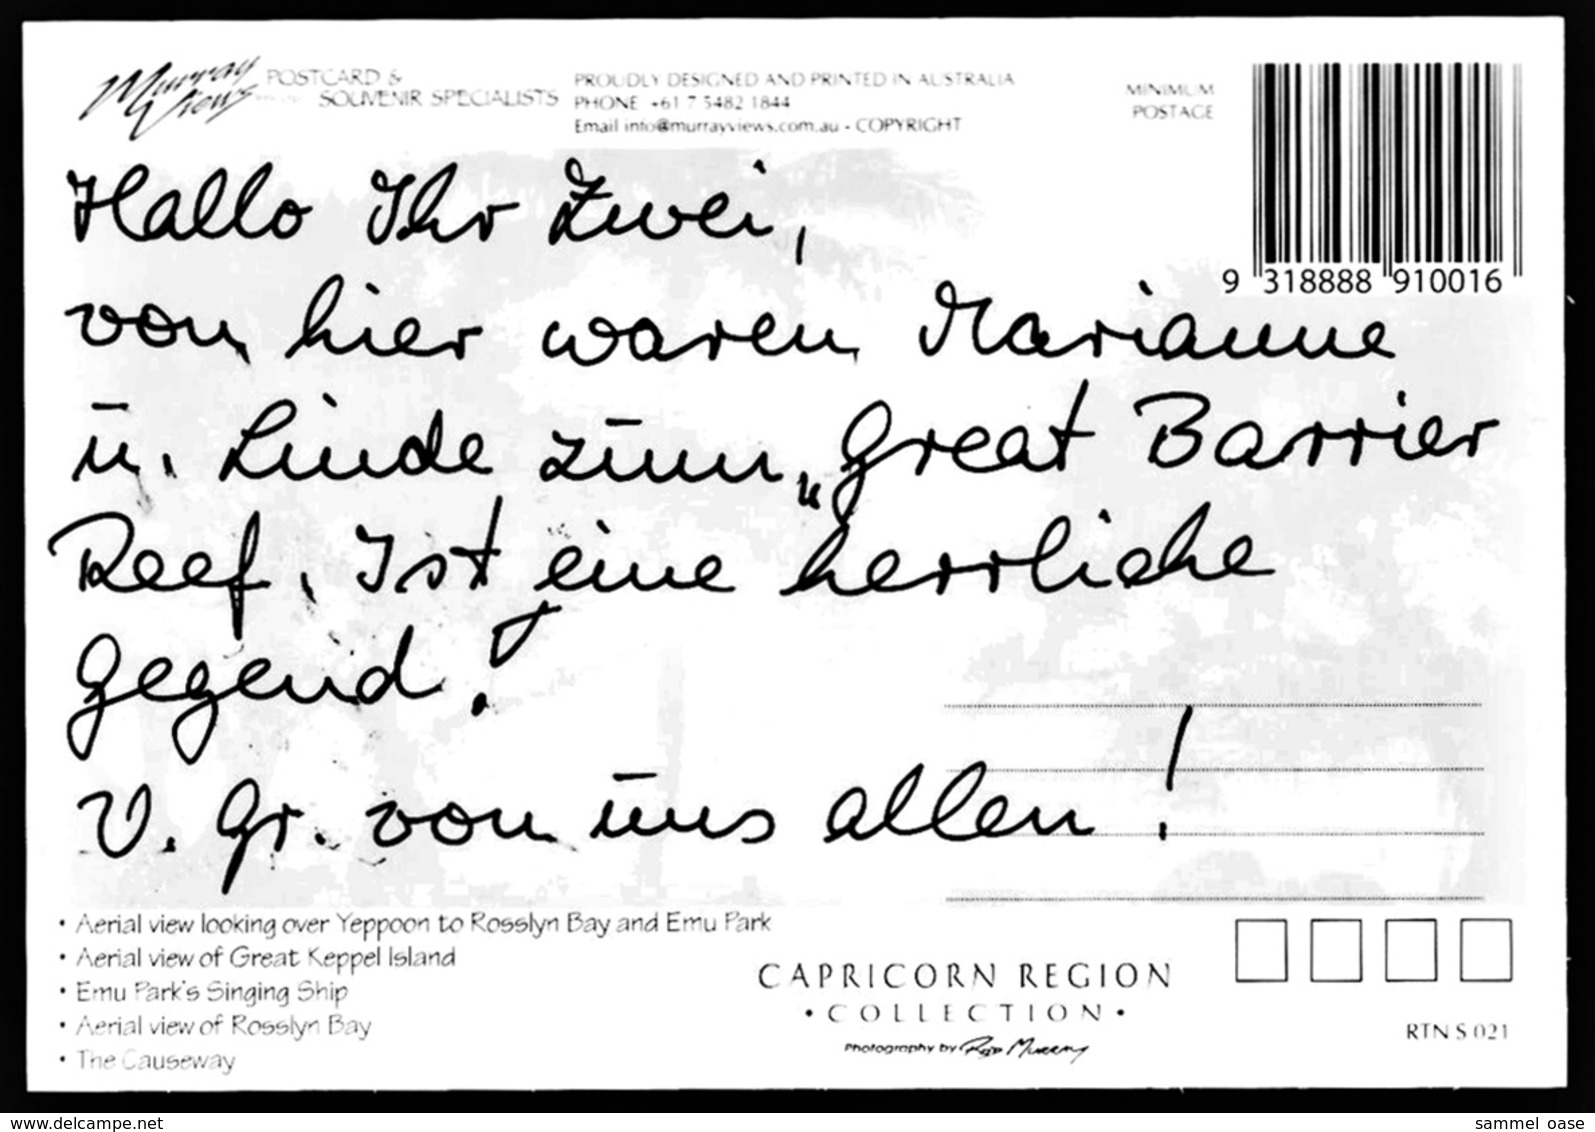 Murray Views
POSTCARD &
SOUVENIR SPECIALISTS
PROUDLY DESIGNED AND PRINTED IN AUSTRALIA
PHONE +61 7 5482 1844
Email info@murrayviews.com.au - COPYRIGHT
MINIMUM
POSTAGE
9 318888 910016
Hallo Ihr Zwei,
von hier waren Marianne
u. Linde zum „Great Barrier
Reef". Ist eine herrliche
Gegend!
V. Gr. von uns allen!
• Aerial view looking over Yeppoon to Rosslyn Bay and Emu Park
• Aerial view of Great Keppel Island
• Emu Park's Singing Ship
• Aerial view of Rosslyn Bay
• The Causeway
CAPRICORN REGION
• COLLECTION •
Photography by Rod Murray
RTN S 021
www.delcampe.net
sammel_oase